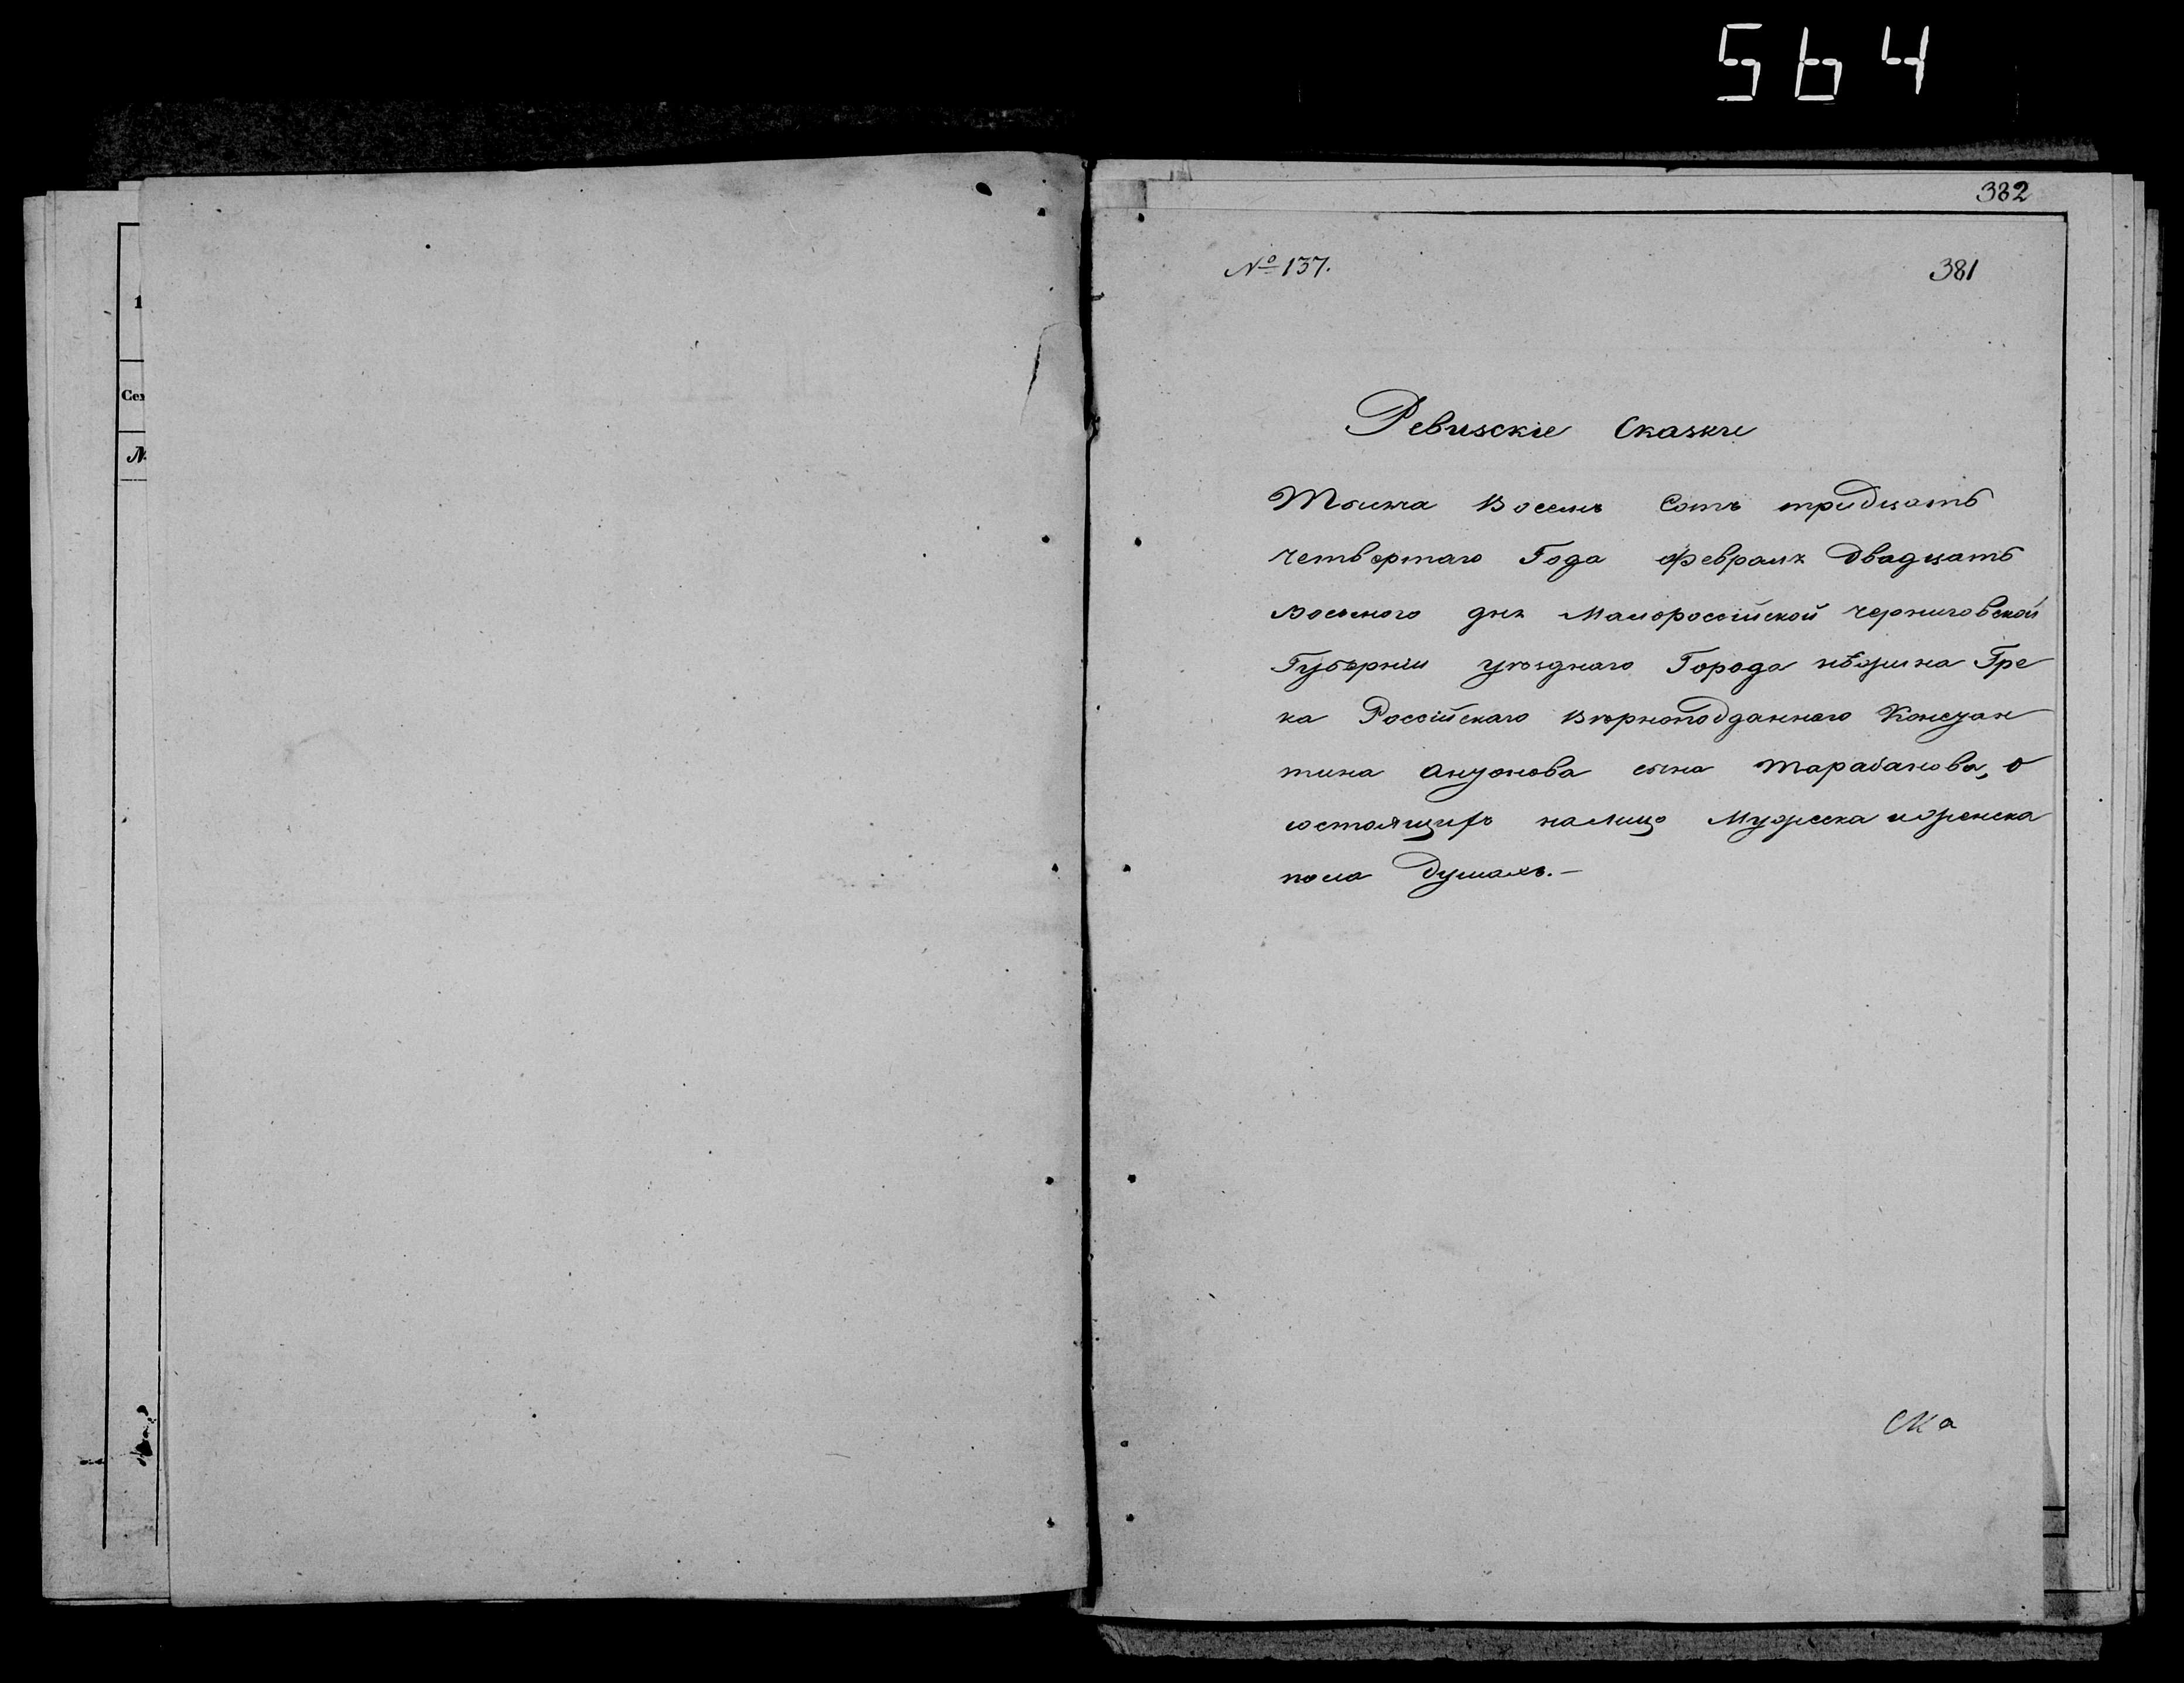 564
382
№ 137.
381
1
Сем
№
Ревизскіе Сказки
Тысяча Восемь Сотъ тридцать
четвертаго Года февраля двадцать
Восьмого дня Малороссійской черниговской
Губерніи уѣзднаго Города нѣжина Гре
ка Россійскаго Вѣрноподданнаго Констан
тина Антонова сына Тарабанова, о
состоящихъ налицо Мужеска иженска
пола Душахъ.—
Ска